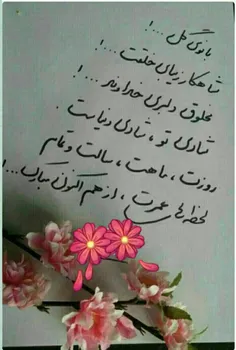 بانوی گل ....!
شاهکار زیبای خلقت ....!
مخلوق دلبری خداوند ....!
شادی تو ، شادی دنیاست
روزت ، ماهت ، سالت و تمام
لحظه های عمرت ، از هم اکنون مبارک ....!